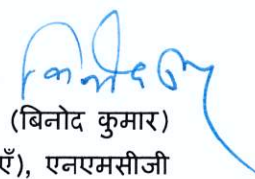 (बिनोद कुमार)
एँ), एनएमसीजी